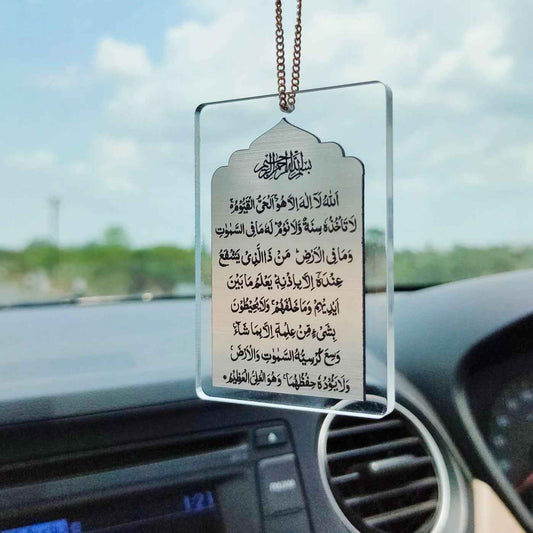 بسم الله الرحمن الرحيم
اَللّٰهُ لَآ اِلٰهَ اِلَّا هُوَ ۚ اَلْحَیُّ الْقَیُّوْمُ ۚ
لَا تَاْخُذُهٗ سِنَةٌ وَّلَا نَوْمٌ ؕ لَهٗ مَا فِی السَّمٰوٰتِ
وَمَا فِی الْاَرْضِ ؕ مَنْ ذَا الَّذِیْ یَشْفَعُ
عِنْدَهٗۤ اِلَّا بِاِذْنِهٖ ؕ یَعْلَمُ مَا بَیْنَ
اَیْدِیْهِمْ وَمَا خَلْفَهُمْ ۚ وَلَا یُحِیْطُوْنَ
بِشَیْءٍ مِّنْ عِلْمِهٖۤ اِلَّا بِمَا شَآءَ ۚ
وَسِعَ كُرْسِیُّهُ السَّمٰوٰتِ وَالْاَرْضَ ۚ
وَلَا یَـُٔوْدُهٗ حِفْظُهُمَا ۚ وَهُوَ الْعَلِیُّ الْعَظِیْمُ
121